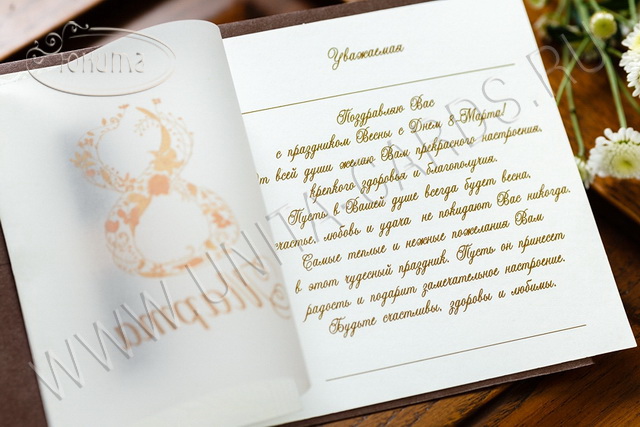 Юнита
8
Марта
Уважаемая
Поздравляю Вас
с праздником Весны с Днем 8-Марта!
От всей души желаю Вам прекрасного настроения,
крепкого здоровья и благополучия.
Пусть в Вашей душе всегда будет весна,
счастье, любовь и удача не покидают Вас никогда.
Самые теплые и нежные пожелания Вам
в этот чудесный праздник. Пусть он принесет
радость и подарит замечательное настроение.
Будьте счастливы, здоровы и любимы.
WWW.UNITA-CARDS.RU